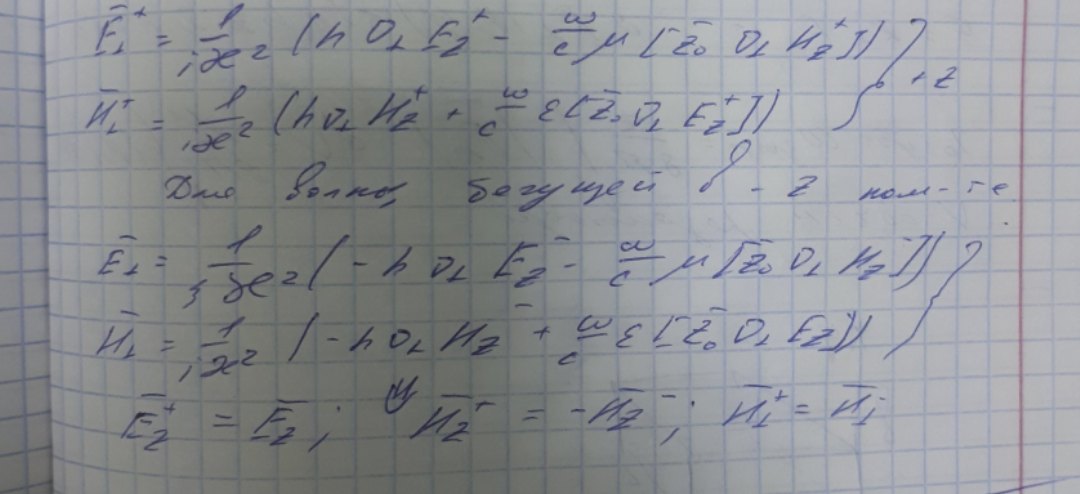 E̅⊥⁺ = 1/iæ² (h∇⊥E_z⁺ - ω/c μ [z̅₀ ∇⊥ H_z⁺])
H̅⊥⁺ = 1/iæ² (h∇⊥H_z⁺ + ω/c ε [z̅₀ ∇⊥ E_z⁺]) } +z
Для волны, бегущей в -z
E̅⊥ = 1/iæ² (-h∇⊥E_z⁻ - ω/c μ [z̅₀ ∇⊥ H_z⁻])
H̅⊥ = 1/iæ² (-h∇⊥H_z⁻ + ω/c ε [z̅₀ ∇⊥ E_z])
E̅_z⁺ = E̅_z; H̅_z⁺ = -H̅_z⁻; H̅⊥⁺ = H̅⊥⁻